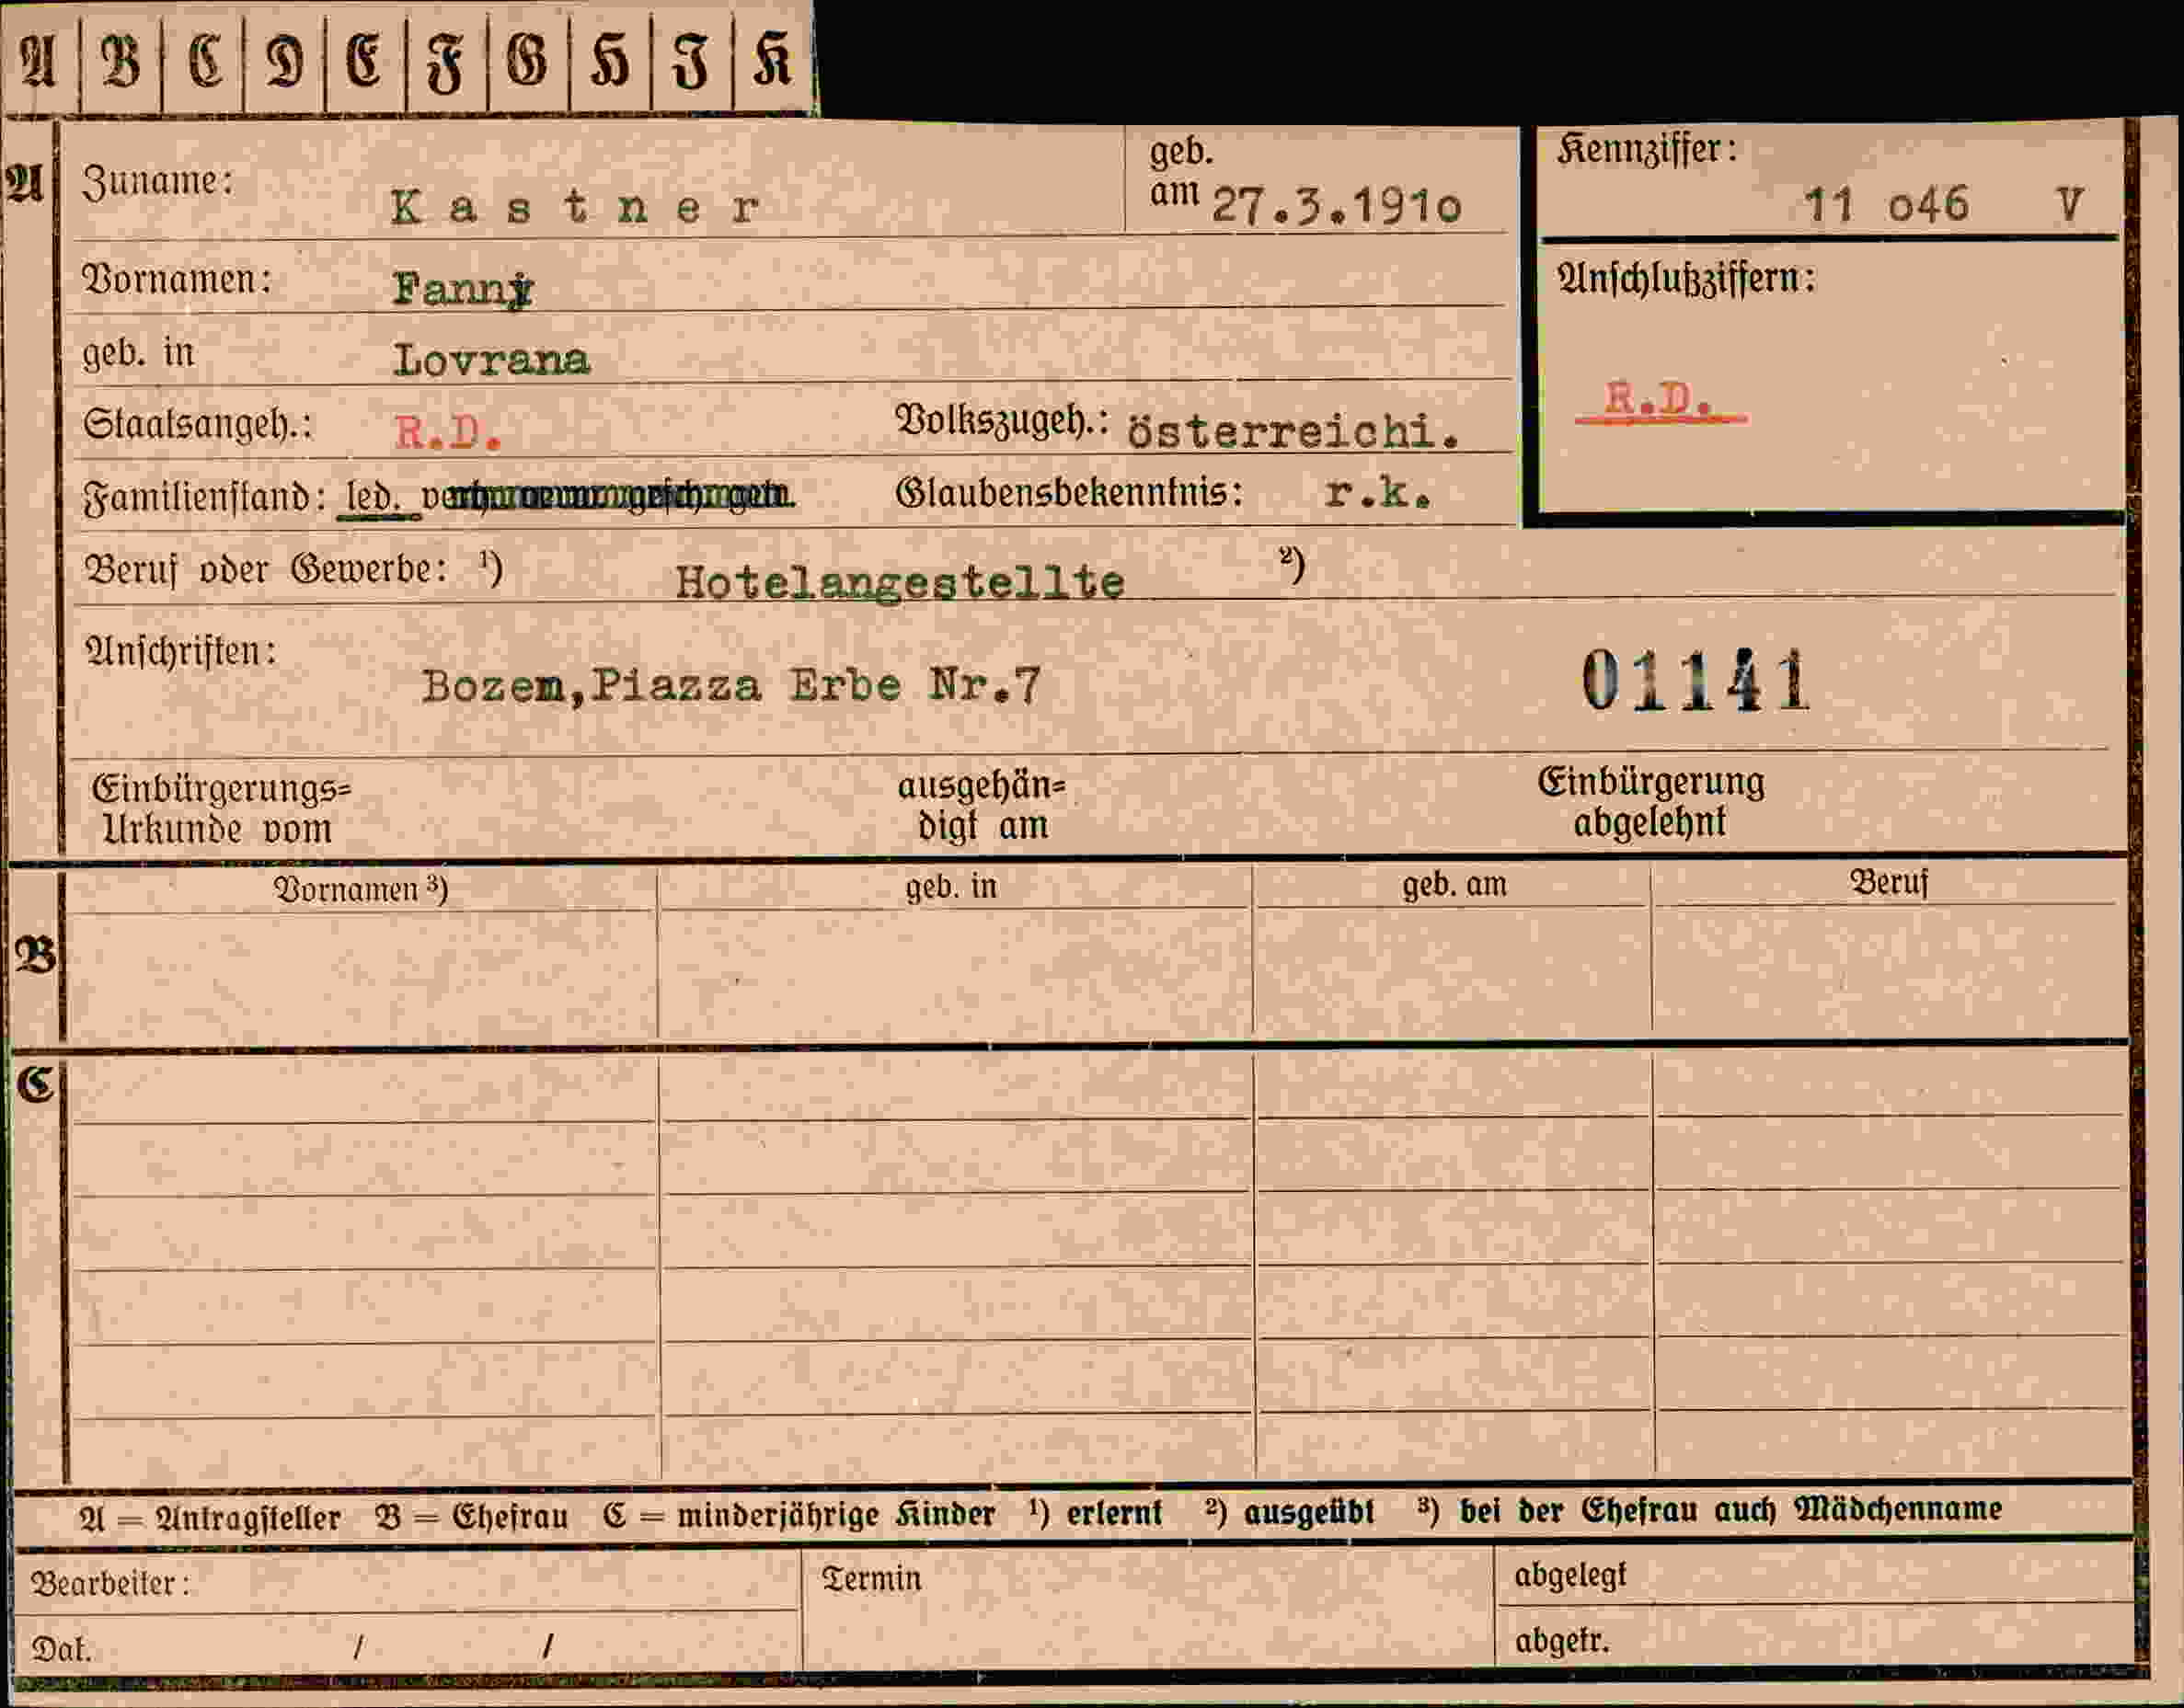 A B C D E F G H I K
A Zuname: Kastner geb. am 27.3.191o Kennziffer: 11 o46 V
Vornamen: Fanny Anschlußziffern:
geb. in Lovrana
Staatsangeh.: R.D. Volkszugeh.: österreichi. R.D.
Familienstand: led. Glaubensbekenntnis: r.k.
Beruf oder Gewerbe: ¹) Hotelangestellte ²)
Anschriften: Bozem,Piazza Erbe Nr.7 01141
Einbürgerungs= ausgehän= Einbürgerung
Urkunde vom digt am abgelehnt
Vornamen ³) geb. in geb. am Beruf
B
C
A = Antragsteller B = Ehefrau C = minderjährige Kinder ¹) erlernt ²) ausgeübt ³) bei der Ehefrau auch Mädchenname
Bearbeiter: Termin abgelegt
Dat. / / abgetr.